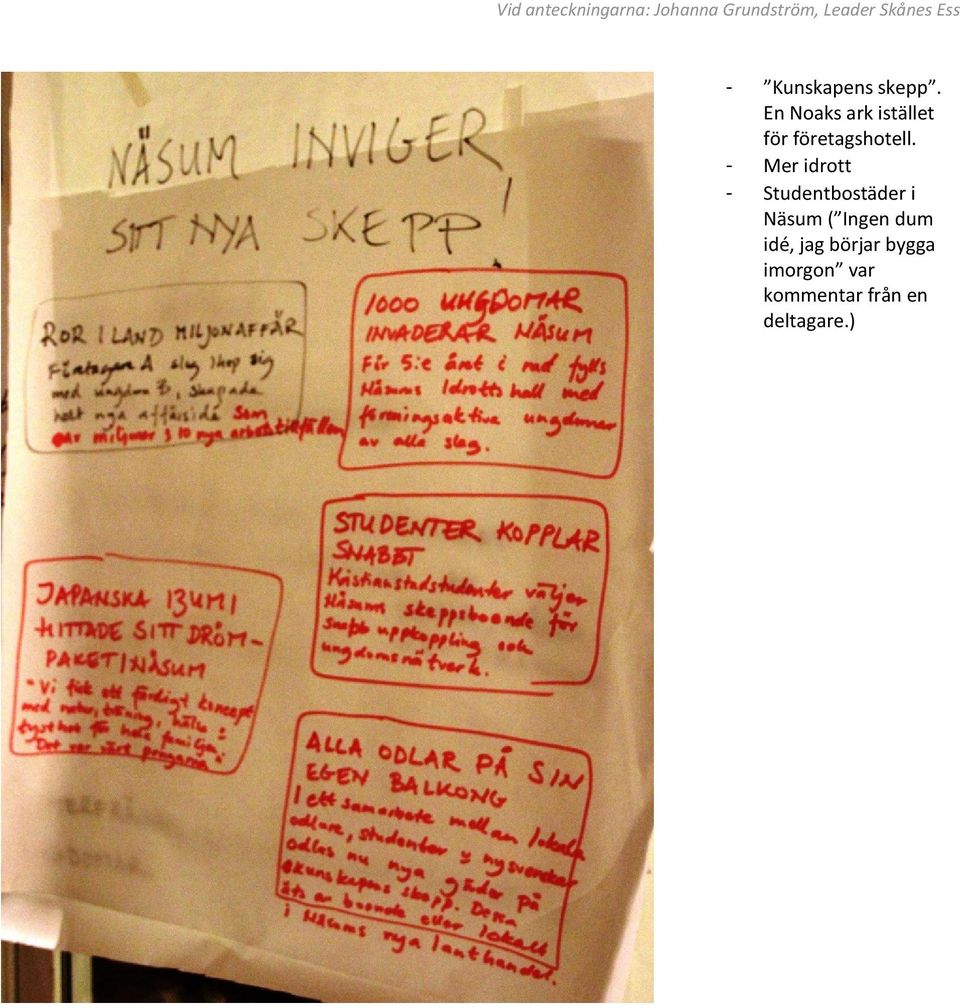 Vid anteckningarna: Johanna Grundström, Leader Skånes Ess
- ”Kunskapens skepp”.
En Noaks ark istället
för företagshotell.
- Mer idrott
- Studentbostäder i
Näsum (”Ingen dum
idé, jag börjar bygga
imorgon” var
kommentar från en
deltagare.)
NÄSUM INVIGER
SITT NYA SKEPP!
ROR I LAND MILJONAFFÄR
Företagare A slog ihop sig
med ungdom B, skapade
helt nya affärsidé som
ger miljoner & 10 nya arbetstillfällen
1000 UNGDOMAR
INVADERAR NÄSUM
För 5:e året i rad fylls
Näsums Idrottshall med
föreningsaktiva ungdomar
av alla slag.
STUDENTER KOPPLAR
SNABBT
Kristianstadstudenter väljer
Näsums skeppsboende för
snabb uppkoppling och
ungdomsnätverk.
JAPANSKA IZUMI
HITTADE SITT DRÖM-
PAKET I NÄSUM
"Vi fick ett färdigt koncept
med natur, träning, hälsa &
tysthet för hela familjen.
Det var värt pengarna"
ALLA ODLAR PÅ SIN
EGEN BALKONG
I ett samarbete mellan lokala
odlare, studenter & nysvenskar
odlas nu nya grödor på
Kunskapens skepp. Dessa
äts av boende eller lokalt
i Näsums nya lanthandel.